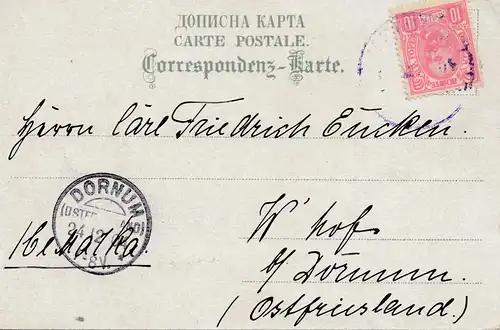 ДОПИСНА КАРТА
CARTE POSTALE.
Correspondenz-Karte.
10 10
Herrn Carl Friedrich Eucken.
DORNUM
(OSTFRIESLAND)
24 12
6-8V.
Немачка.
W'hof
b/ Dornum.
(Ostfriesland.)